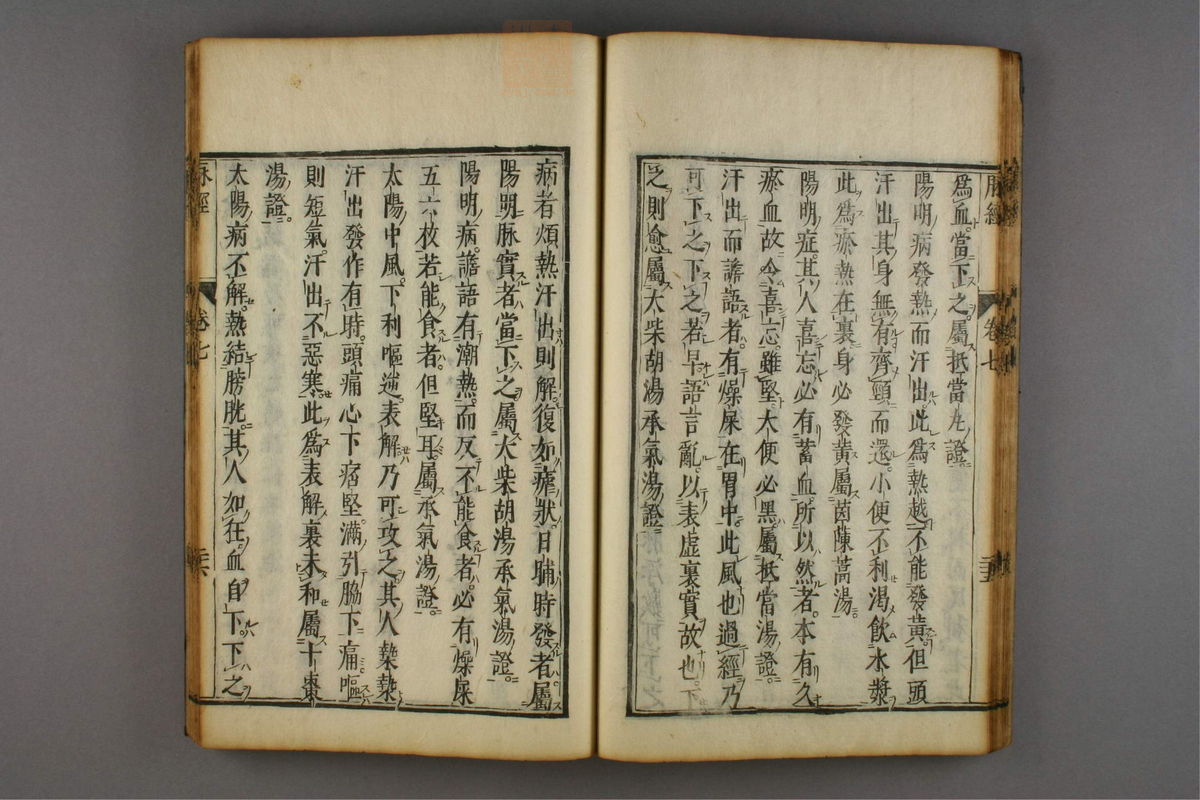 脉經 卷七 二十五
爲血當下之屬抵當丸證
陽明病發熱而汗出此爲熱越不能發黃但頭
汗出其身無有齊頸而還小便不利渴飲水漿
此爲瘀熱在裏身必發黃屬茵陳蒿湯
陽明症其人喜忘必有蓄血所以然者本有久
瘀血故令喜忘雖堅大便必黑屬抵當湯證
汗出而譫語者有燥屎在胃中此風也過經乃
可下之下之若早語言亂以表虛裏實故也下
之則愈屬大柴胡湯承氣湯證
病者煩熱汗出則解復如瘧狀日晡時發者屬
陽明脉實者當下之屬大柴胡湯承氣湯證
陽明病譫語有潮熱而反不能食者必有燥屎
五六枚若能食者但堅耳屬承氣湯證
太陽中風下利嘔逆表解乃可攻之其人漐漐
汗出發作有時頭痛心下痞堅滿引脇下痛嘔
則短氣汗出不惡寒此爲表解裏未和屬十棗
湯證
太陽病不解熱結膀胱其人如狂血自下下之
脉經 卷七 二十六